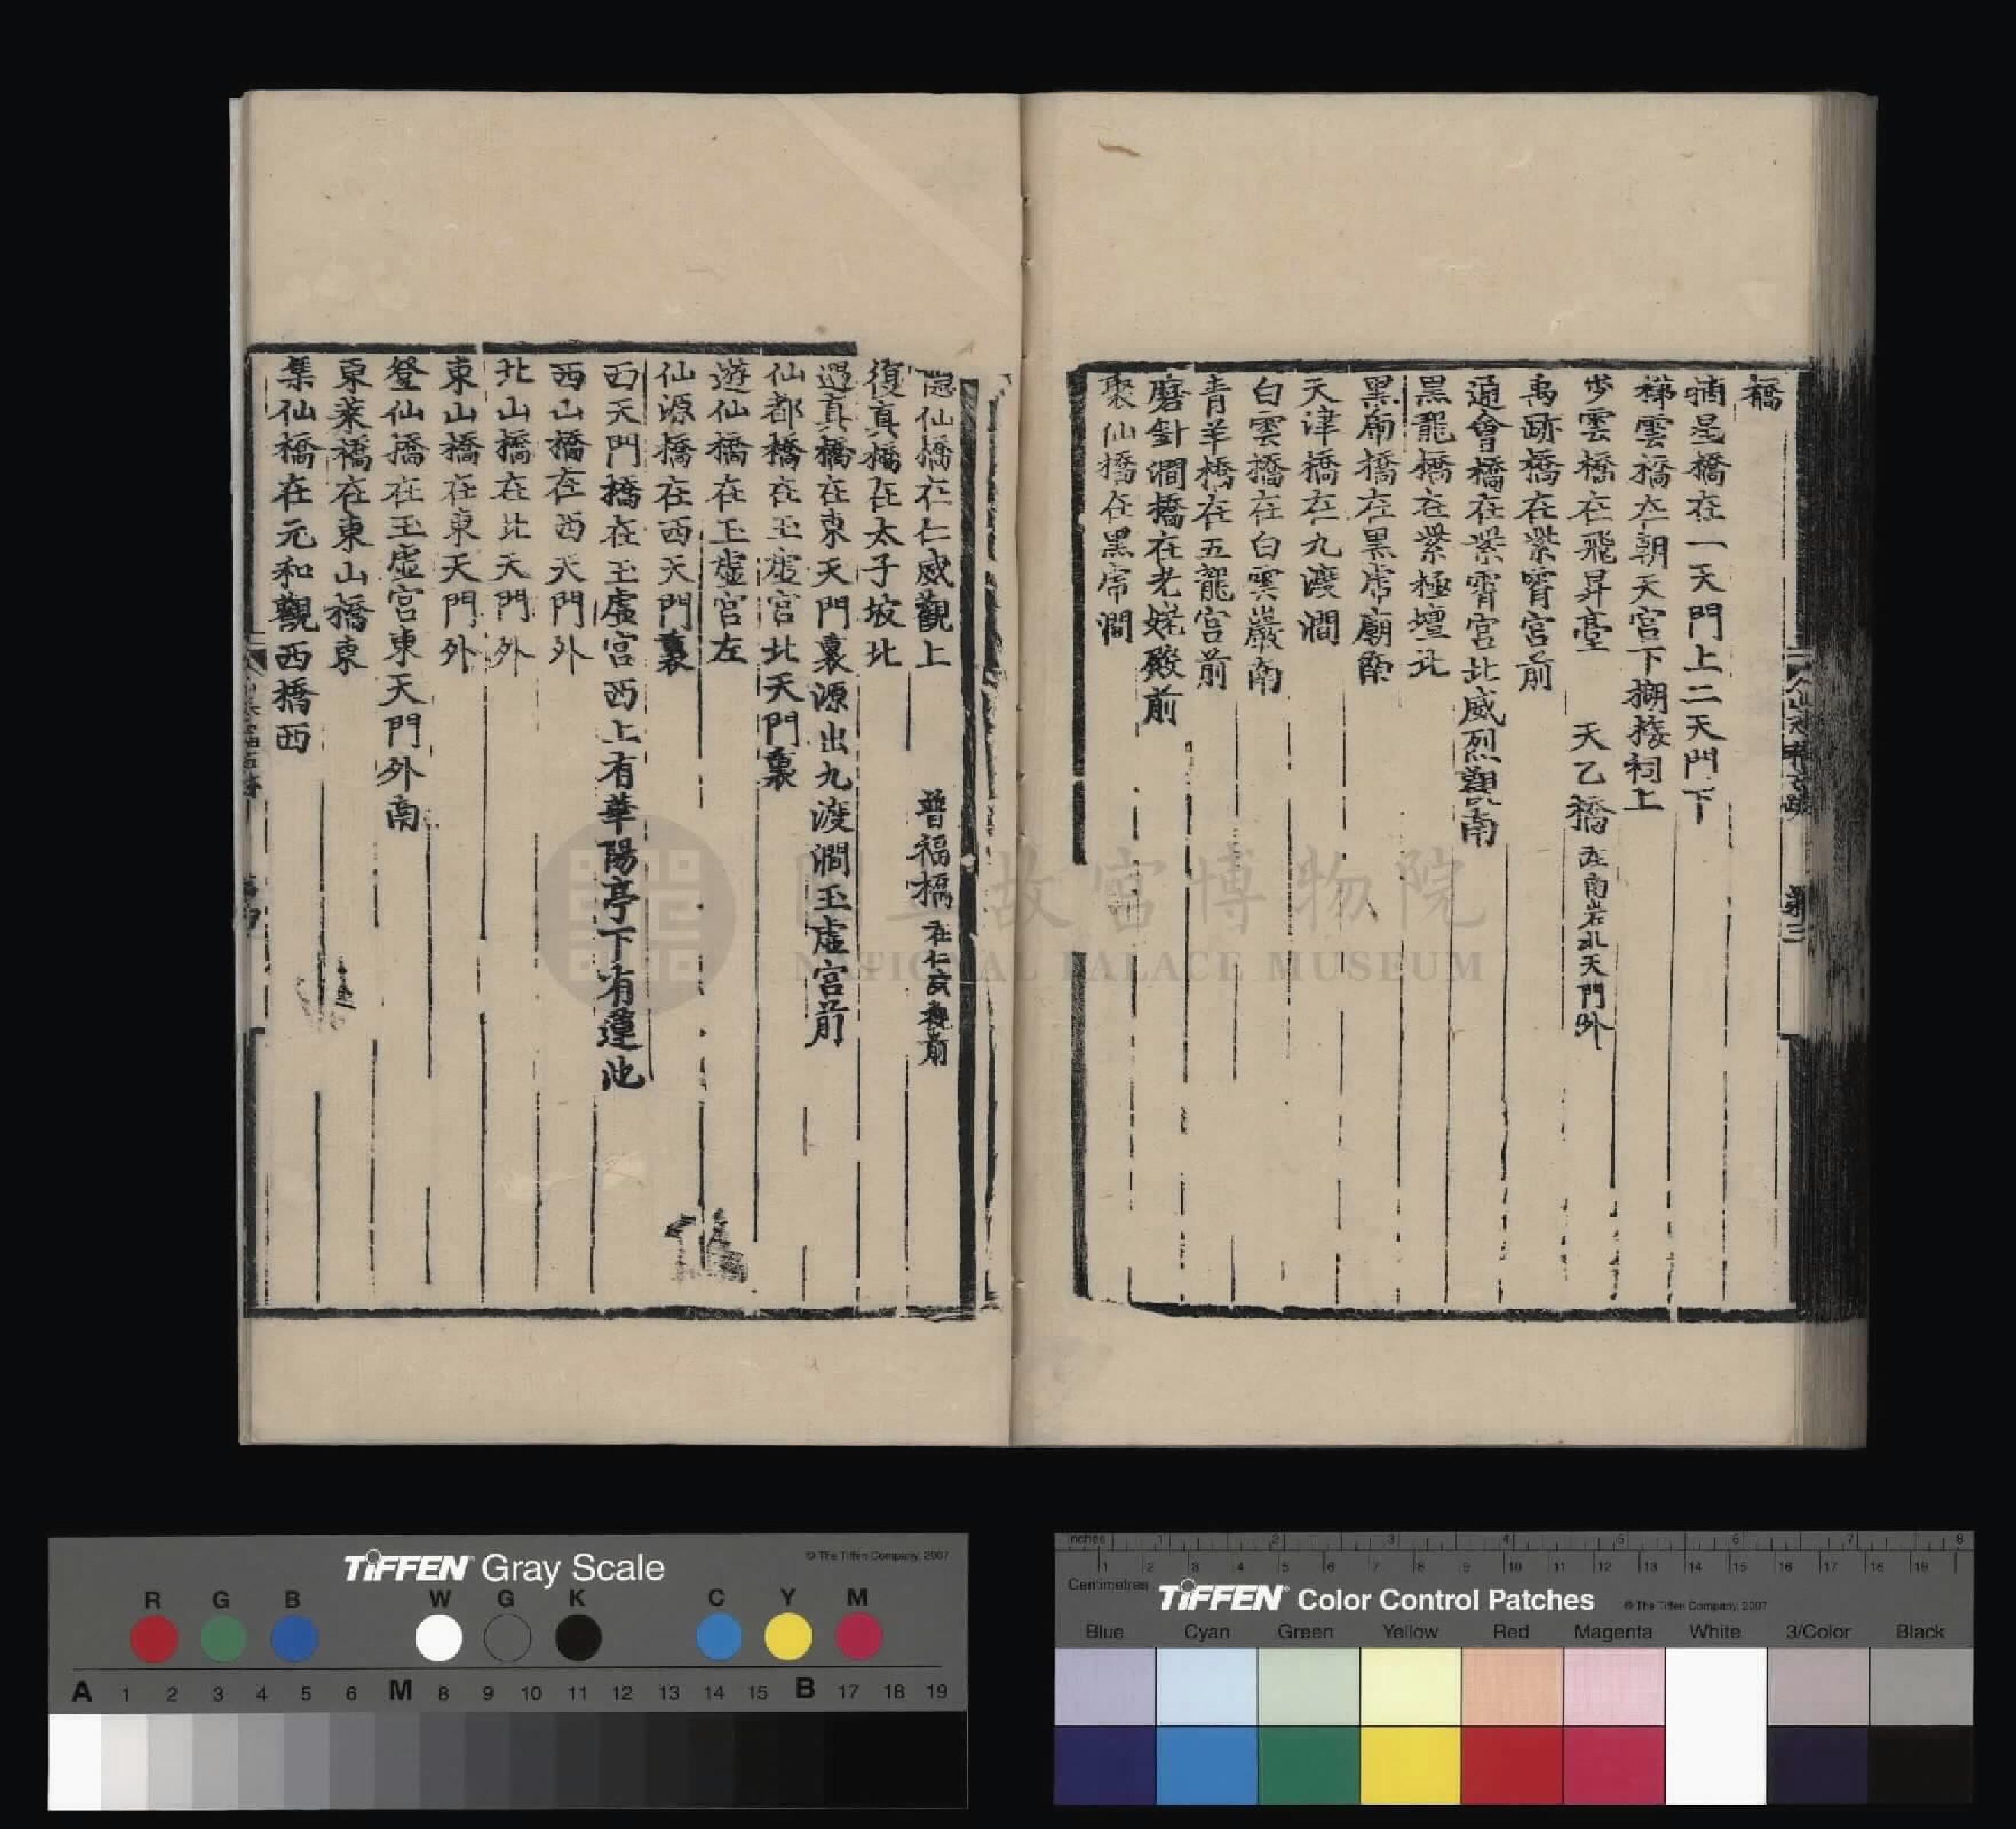 橋
摘星橋在一天門上二天門下
梯雲橋在朝天宮下搠搽祠上
步雲橋在飛昇臺 天乙橋在南岩北天門外
禹跡橋在紫霄宮前
通會橋在紫霄宮北威烈觀以南
黑龍橋在紫極壇北
黑虎橋在黑虎廟南
天津橋在九渡澗
白雲橋在白雲巖南
青羊橋在五龍宮前
磨針澗橋在老姥殿前
聚仙橋在黑虎澗
隠仙橋在仁威觀上 普福橋在仁威觀前
復真橋在太子坡北
遇真橋在東天門裏源出九渡澗玉虛宮前
仙都橋在玉虛宮北天門裏
遊仙橋在玉虛宮左
仙源橋在西天門裏
西天門橋在玉虛宮西上有華陽亭下有蓮池
西山橋在西天門外
北山橋在北天門外
東山橋在東天門外
登仙橋在玉虛宮東天門外南
東萊橋在東山橋東
集仙橋在元和觀西橋西
國立故宮博物院
NATIONAL PALACE MUSEUM
TIFFEN Gray Scale
© The Tiffen Company, 2007
R G B W G K C Y M
A 1 2 3 4 5 6 M 8 9 10 11 12 13 14 15 B 17 18 19
Inches 1 2 3 4 5 6 7 8
Centimetres 1 2 3 4 5 6 7 8 9 10 11 12 13 14 15 16 17 18 19
TIFFEN Color Control Patches
© The Tiffen Company, 2007
Blue Cyan Green Yellow Red Magenta White 3/Color Black